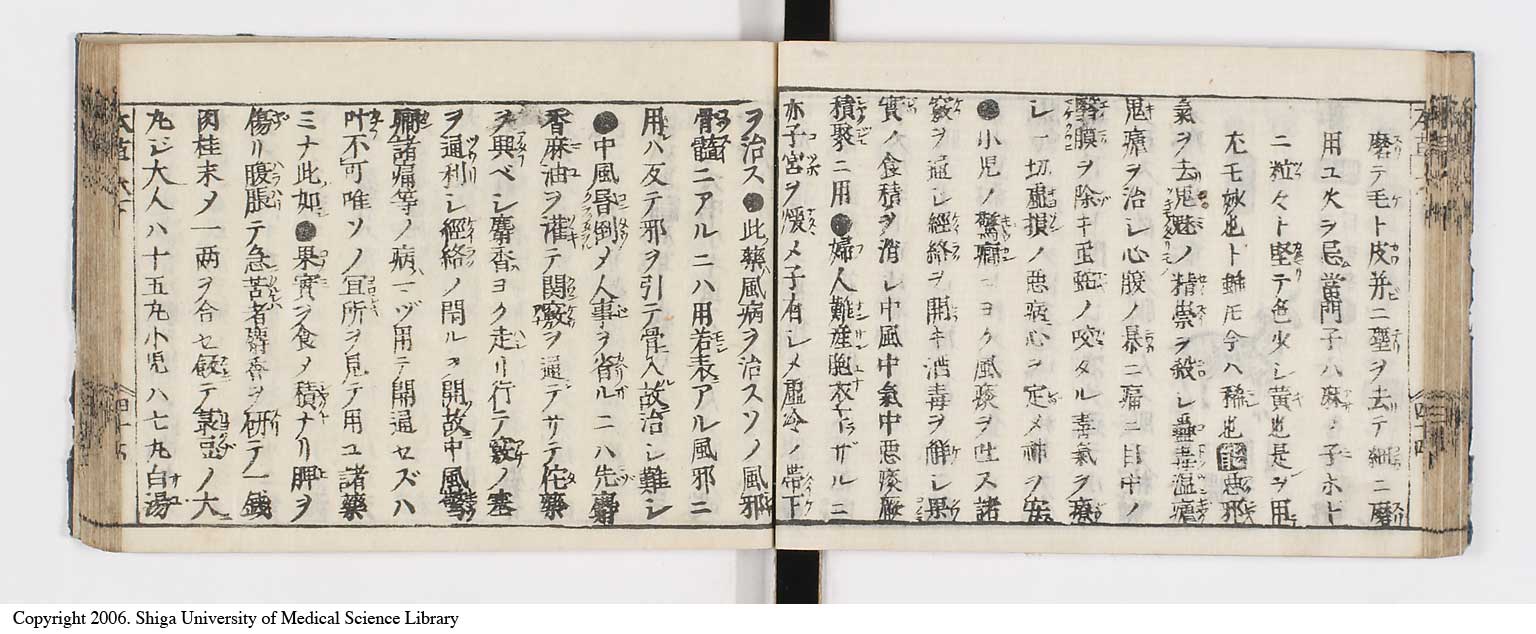 磨テ毛ト皮并ニ
ヲ去テ細ニ磨
用ユ火ヲ忌當門子ハ麻ノ子ホト
ニ粒々ト堅テ色少シ黄也是ヲ用
尤モ妙也ト雖モ今ハ稀也能悪邪
氣ヲ去鬼魅ノ精祟ヲ殺シ蠱毒温瘧
鬼瘧ヲ治シ心腹ノ暴ニ痛ミ目中ノ
膜ヲ除キ
ノ咬タル毒氣ヲ療
シ一切虚損ノ悪病心ヲ定メ神ヲ安
●小児ノ驚癇ニヨク風痰ヲ吐ス諸
竅ヲ通シ經絡ヲ開キ酒毒ヲ觧シ果
實ノ食積ヲ消シ中風中氣中悪痰厥
積聚ニ用●婦人難産胞衣下ザルニ
亦子宮ヲ煖メ子有シメ虚冷ノ帶下
ヲ治ス●此藥風病ヲ治スソノ風邪
骨髓ニアルニハ用若表アル風邪ニ
用ハ反テ邪ヲ引テ骨入故治シ難シ
●中風昏倒メ人事ヲ省ルニハ先麝
香麻油ヲ灌テ関竅ヲ通テサテ佗藥
ヲ與ベシ麝香ヨク走リ行テ竅ノ塞
ヲ通利シ經絡ノ閉ルヲ開故中風
諸痛等ノ病一ヅ用テ開通セズハ
叶不可唯ソノ宜所ヲ見テ用ユ諸藥
ミナ此如●果實ヲ食メ積ナリ脾ヲ
傷リ腹脹テ急苦者麝香ヲ研テ一錢
肉桂末メ一兩ヲ合セ餃テ菉豆ノ大
丸ジ大人ハ十五丸小児ハ七丸白湯
Copyright 2006. Shiga University of Medical Science Library